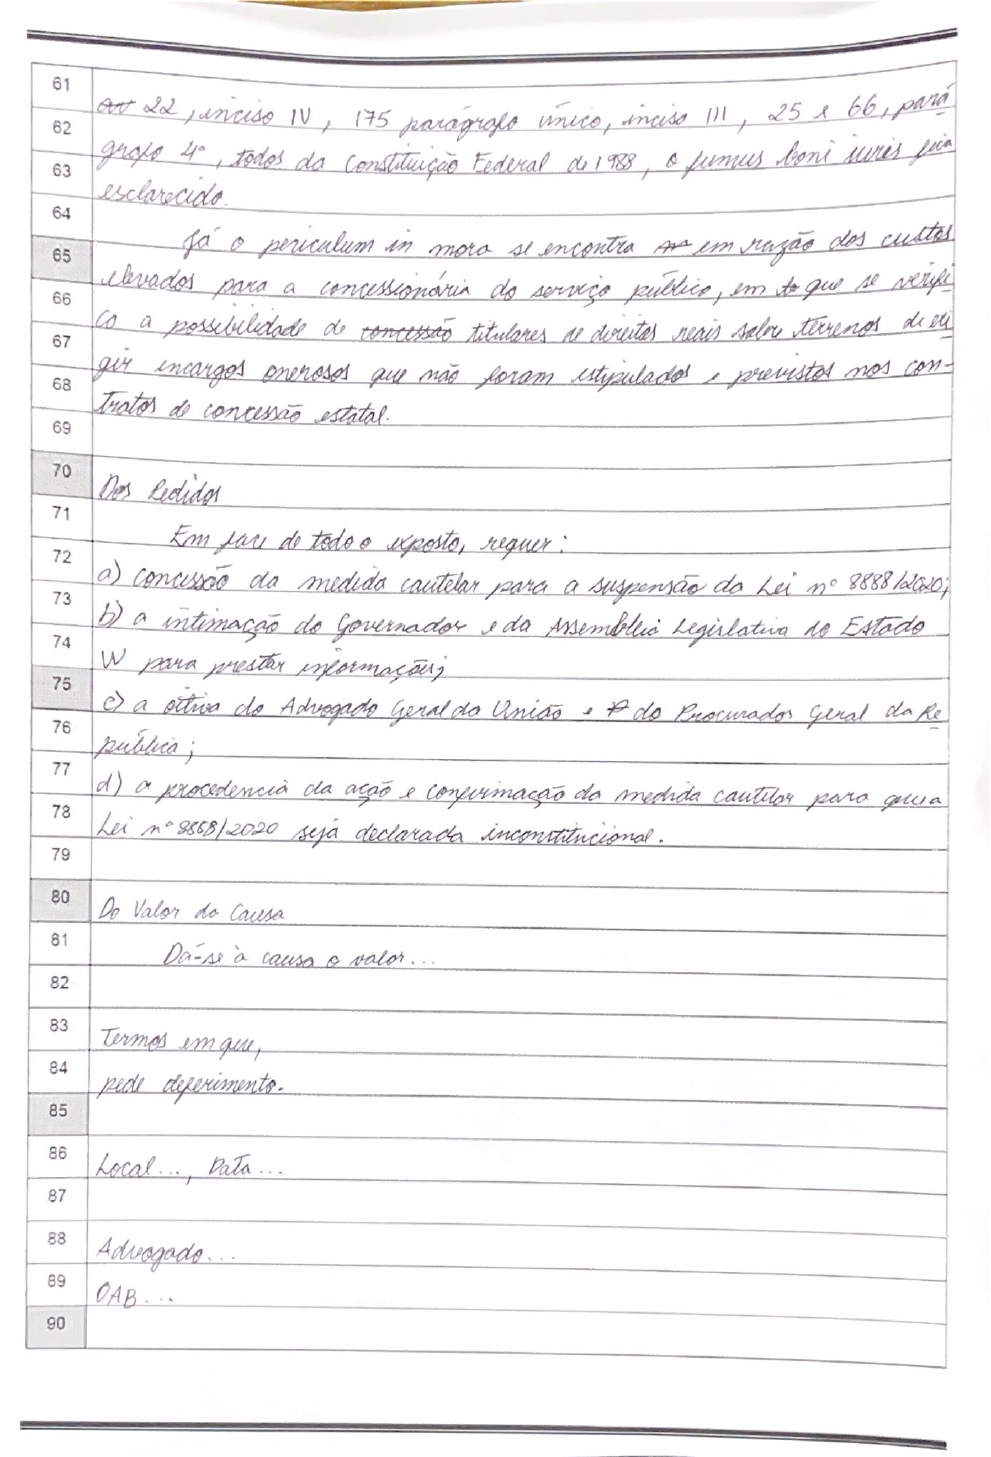 61
Art 22, inciso IV, 175 parágrafo único, inciso III, 25 e 66, pará
62
grafo 4º, todos da Constituição Federal de 1988, o fumus boni iuris fica
63
esclarecido.
64
Já o periculum in mora se encontra em razão dos custos
65
elevados para a concessionária do serviço público, em que se verifi
66
ca a possibilidade de concessão titulares de direitos reais sobre terrenos de exi
67
gir encargos onerosos que não foram estipulados e previstos nos con-
68
tratos de concessão estatal.
69
70
Dos Pedidos
71
Em face de todo o exposto, requer:
72
a) concessão da medida cautelar para a suspensão da Lei nº 8888/2020;
73
b) a intimação do Governador e da Assembleia Legislativa do Estado
74
W para prestar informações;
75
c) a oitiva do Advogado Geral da União e do Procurador Geral da Re
76
pública;
77
d) a procedencia da ação e confirmação da medida cautelar para que a
78
Lei nº 8888/2020 seja declarada inconstitucional.
79
80
Do Valor da Causa
81
Dá-se à causa o valor...
82
83
Termos em que,
84
pede deferimento.
85
86
Local..., Data...
87
88
Advogado...
89
OAB...
90